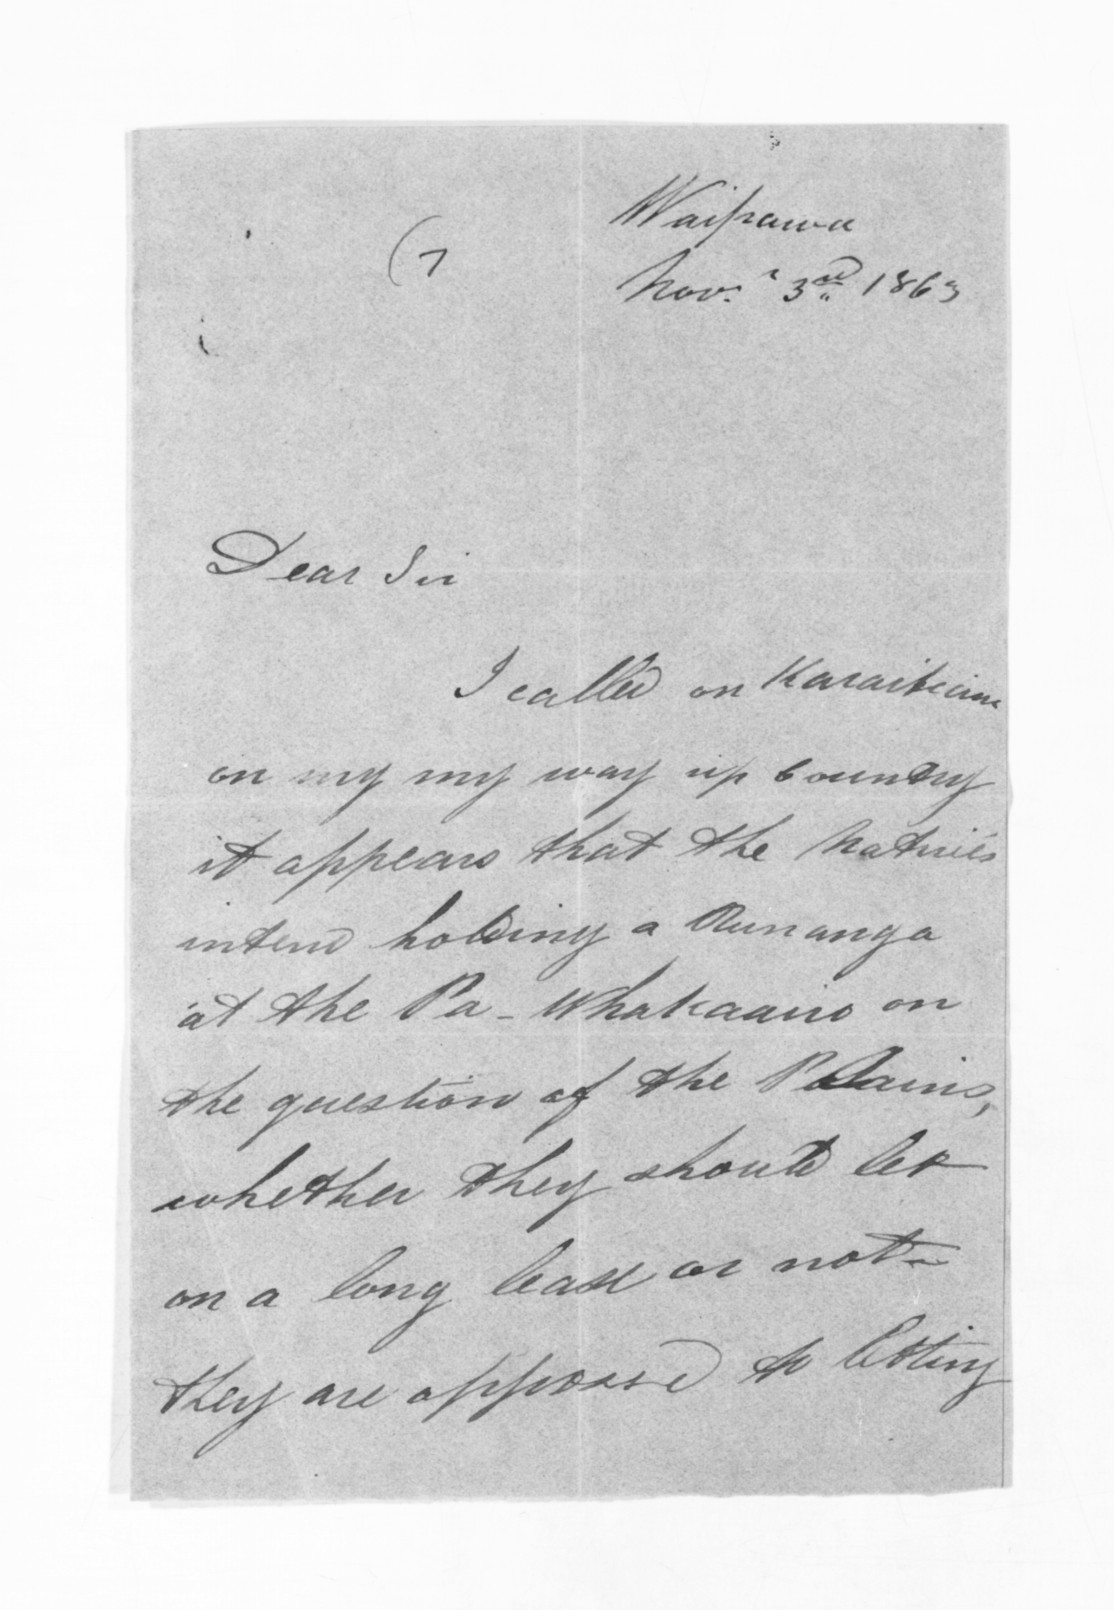 Waipawa
(7
Nov.r 3rd 1863
Dear Sir
I called on Karaitiana
on my my way up country
it appears that the Natives
intend holding a Runanga
at the Pa - Whakaairo on
the question of the Plains,
whether they should let
on a long lease or not -
they are opposed to letting